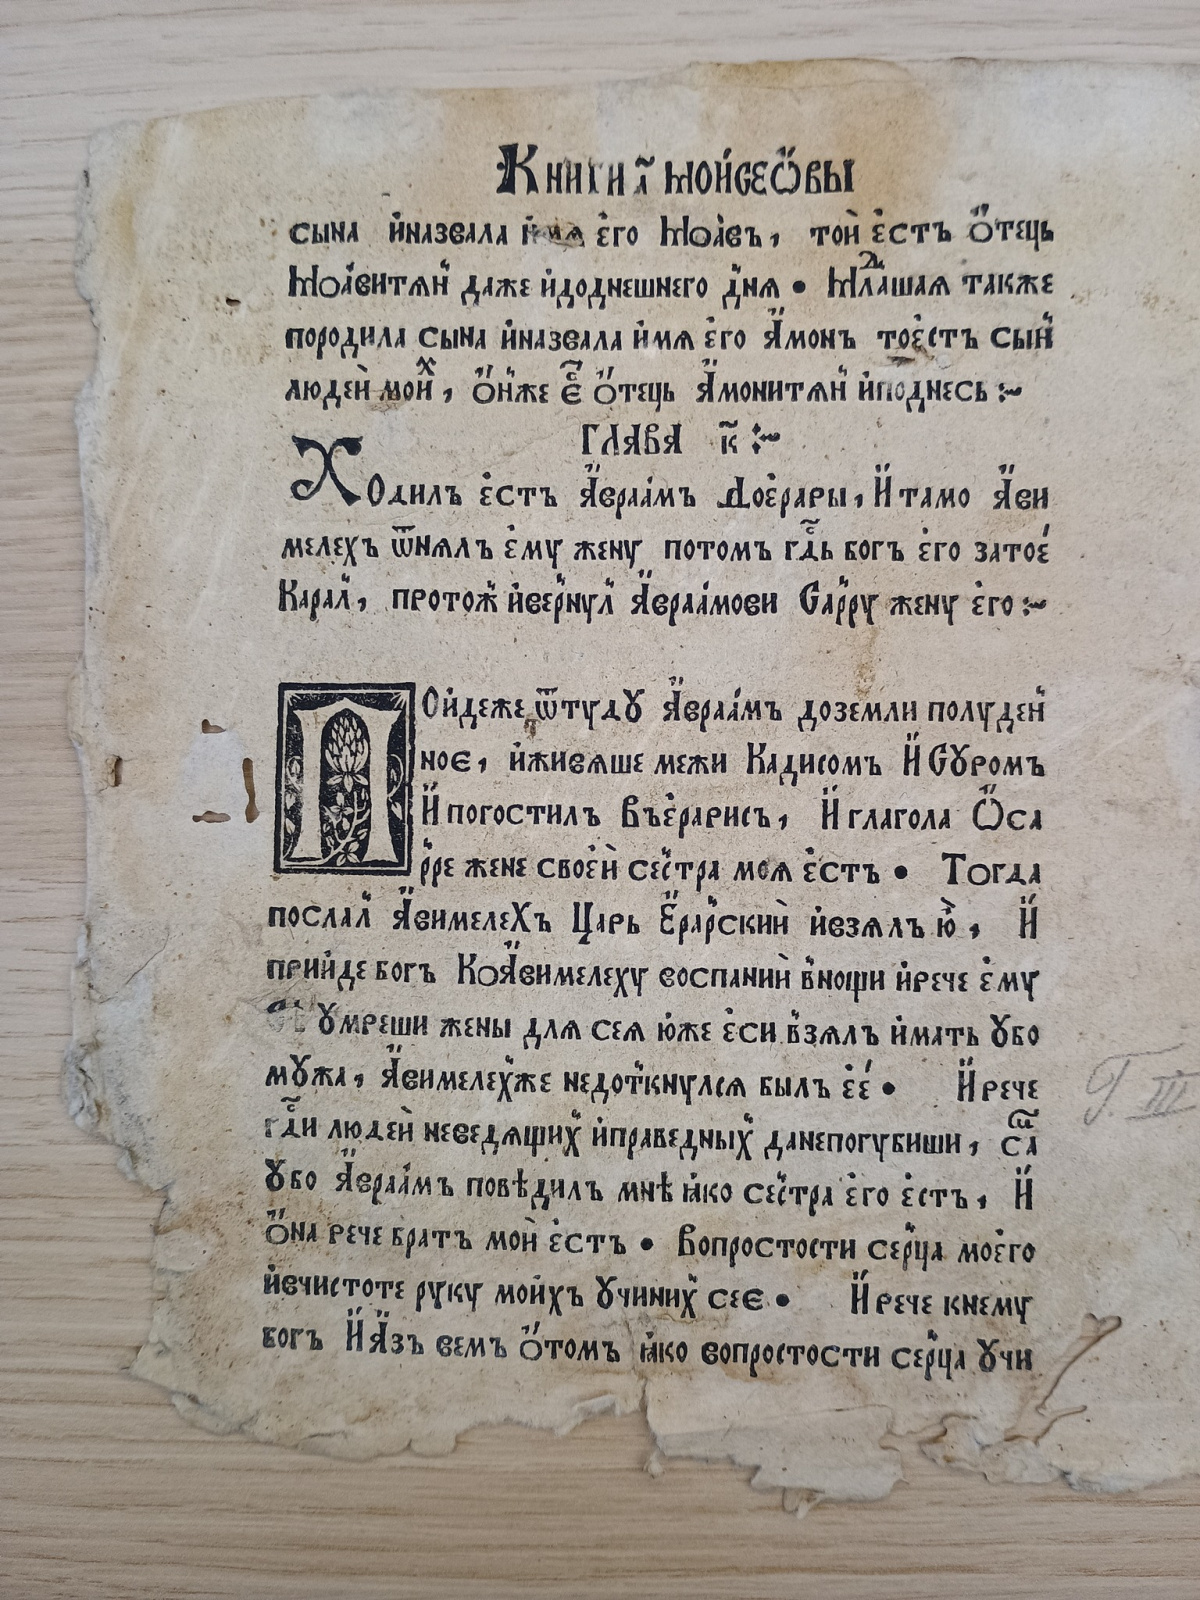 Книги а҃ мойсеѡвы
сына йназвала имѧ его Моавъ, той естъ Отець
Моавитѧн даже йдоднешнего дня • Млⷣашаѧ также
породила сына йназвала ймѧ его Амонъ тоестъ сын
людей моиⷯ, Онже е҃ Отець Амонитѧн йподнесь :~
ГЛАВА к҃ :~
Ходилъ естъ Авраамъ Доерары, И тамо Ави
мелехъ ѿнялъ ему жену потомъ гдⷭь богъ его затое
Карал, протож йвернул Авраамови Сарру жену его :~
Пойдеже ѿтудꙋ Авраамъ доземли полуден
ное, йживѧше межи Кадисомъ И Сꙋромъ
И погостилъ Въерарисъ, И глагола Ѡса
рре жене своей сестра моѧ естъ • Тогда
послал Авимелехъ Царь Ерарский йвзѧлъ ю, И
прийде богъ КоАвимелеху воспаний внощи йрече ему
ꙋмреши жены длѧ сеѧ юже еси взѧлъ иматъ ꙋбо
мꙋжа, Авимелехже недоткнулсѧ былъ ее • И рече
гдⷭи людей неведѧщих йправедных данепогубиши,
ꙋбо Авраамъ повѣдилъ мнѣ ꙗко сестра его естъ, И
Она рече братъ мой естъ • Вопростости серца моего
йвчистоте руку мойхъ ꙋчиних сее • И рече кнему
богъ И Азъ вемъ Отомъ ꙗко вопростости серца ꙋчи
Г. III